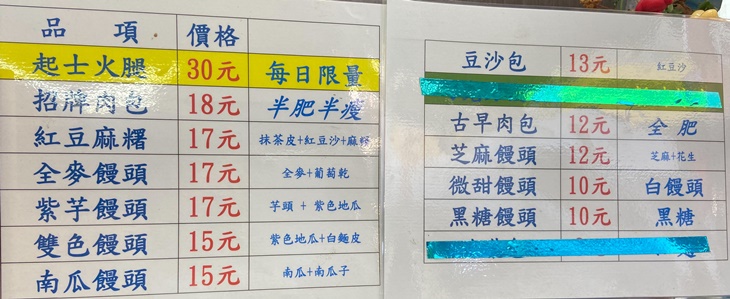 品項 價格
起士火腿 30元 每日限量
招牌肉包 18元 半肥半瘦
紅豆麻糬 17元 抹茶皮+紅豆沙+麻糬
全麥饅頭 17元 全麥+葡萄乾
紫芋饅頭 17元 芋頭 + 紫色地瓜
雙色饅頭 15元 紫色地瓜+白麵皮
南瓜饅頭 15元 南瓜+南瓜子
豆沙包 13元 紅豆沙
古早肉包 12元 全肥
芝麻饅頭 12元 芝麻+花生
微甜饅頭 10元 白饅頭
黑糖饅頭 10元 黑糖